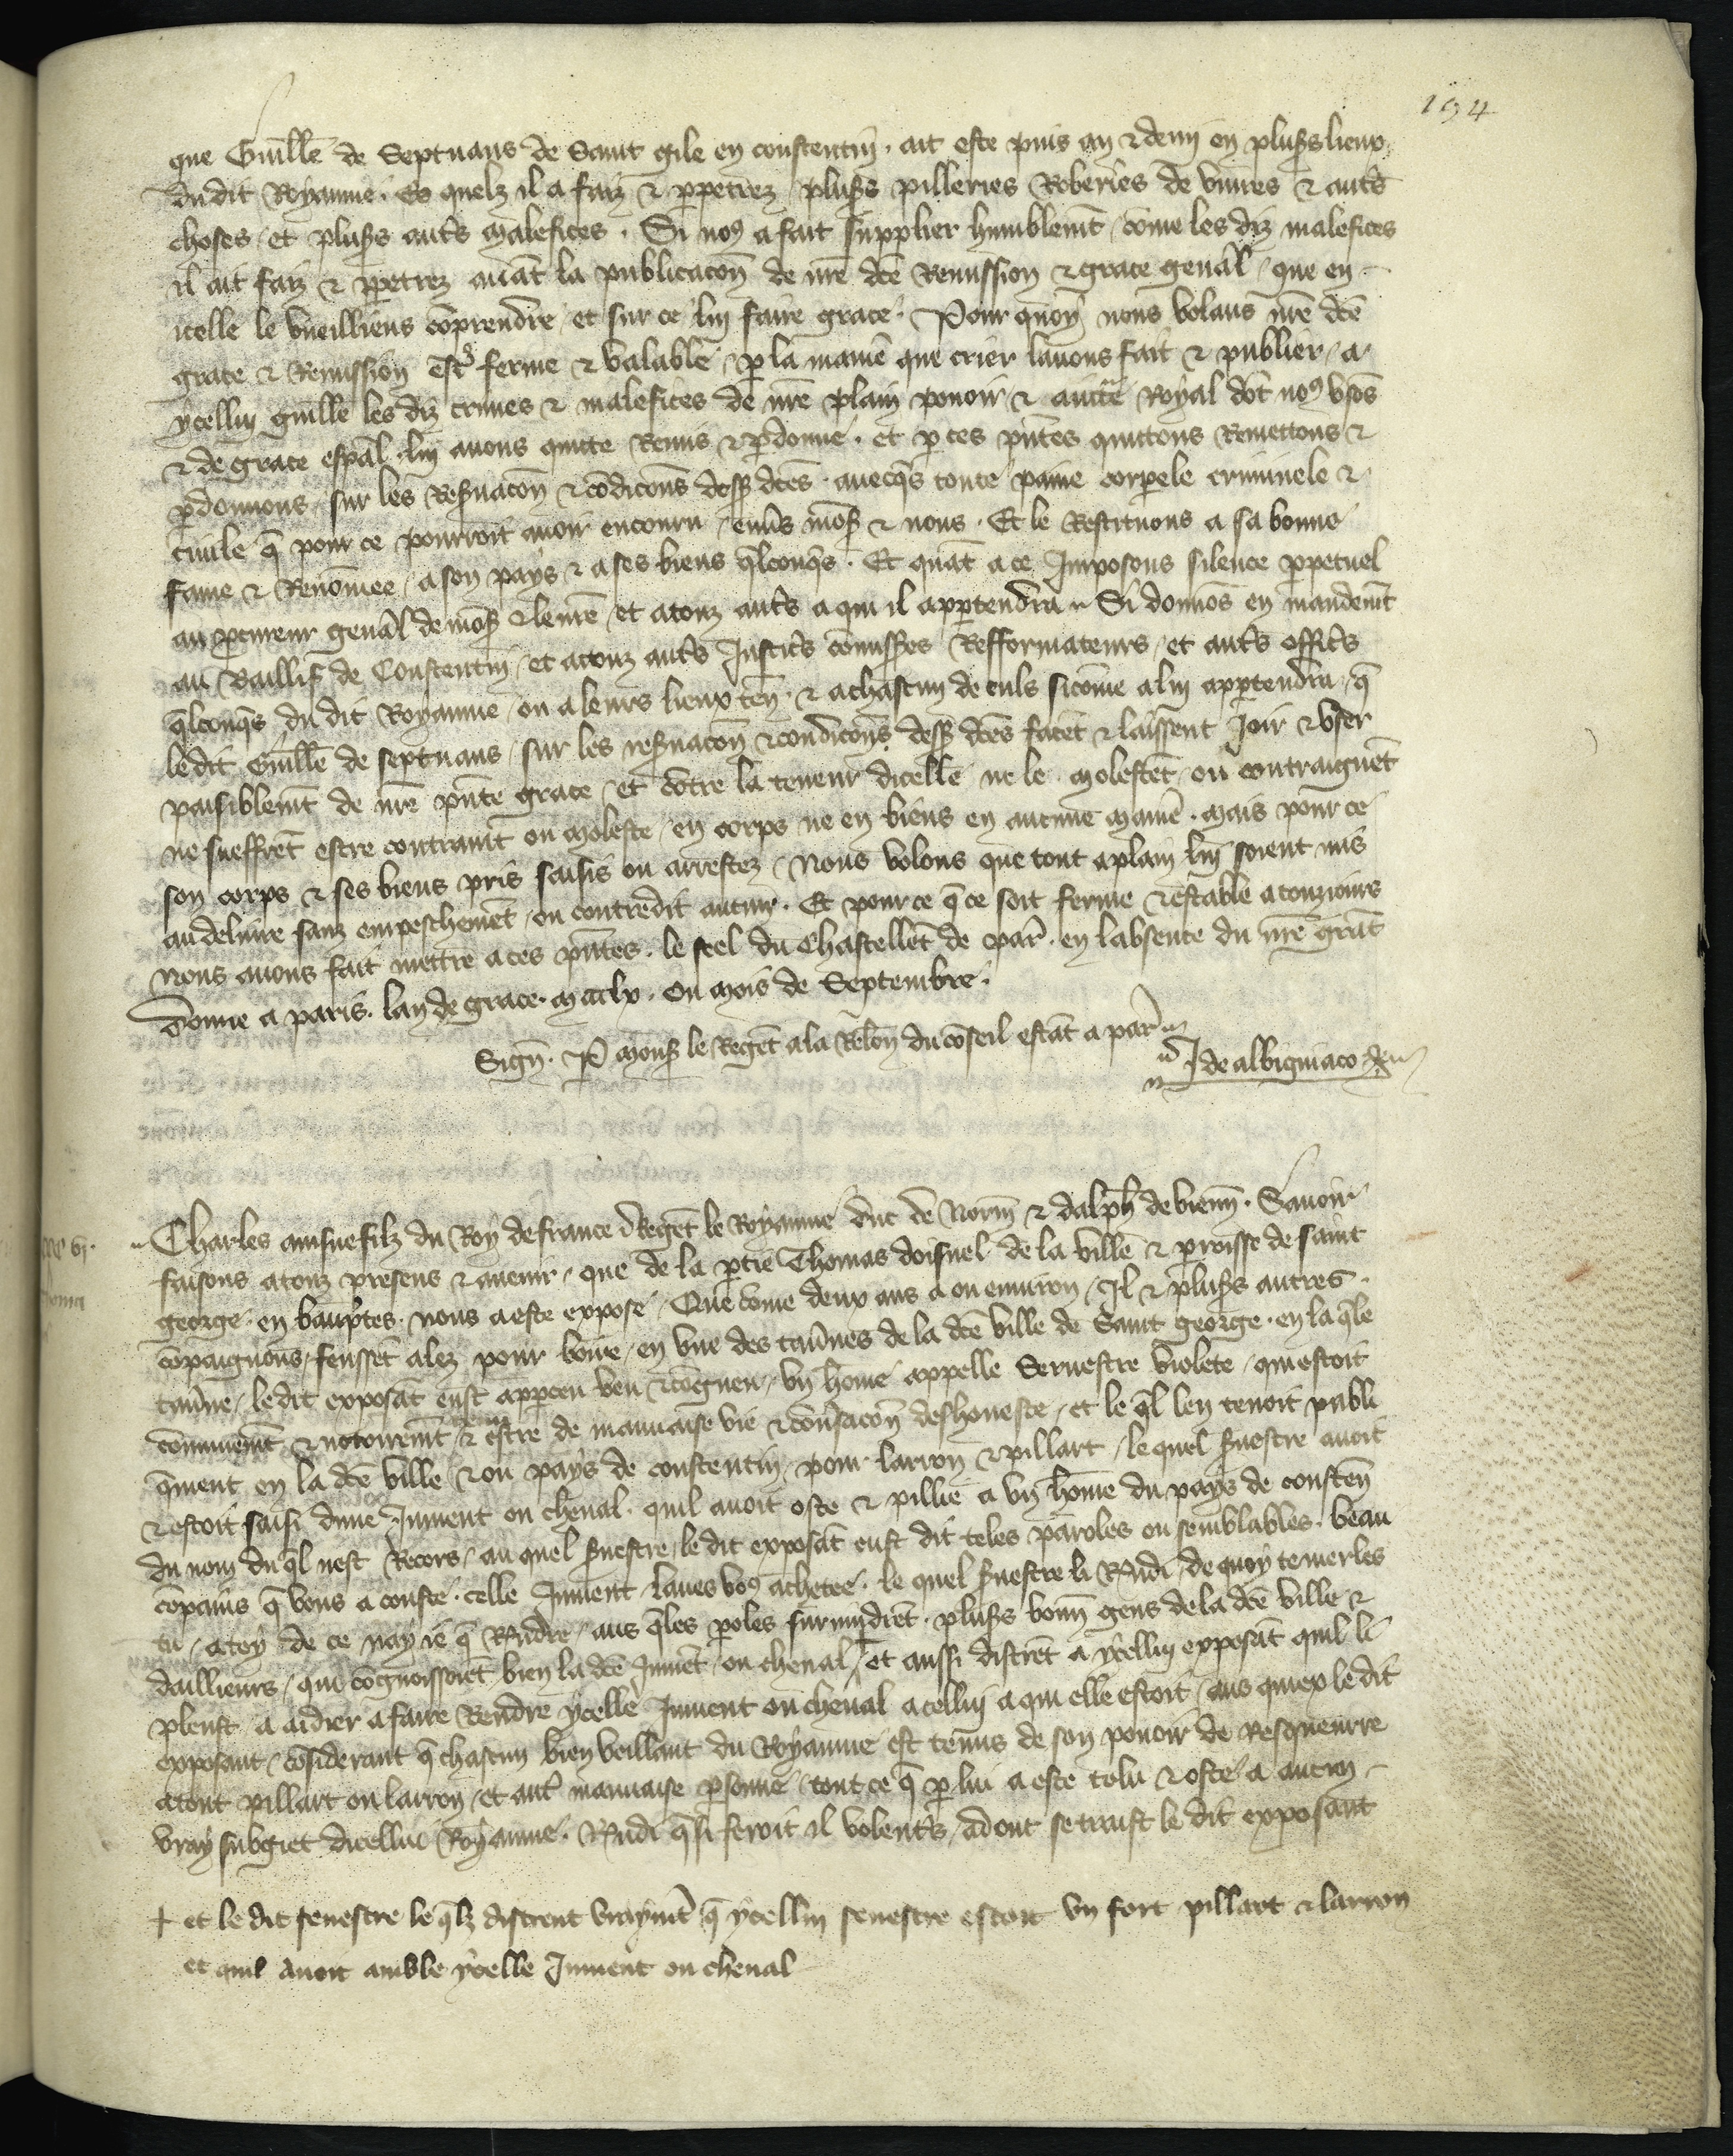 194
que Guille̅ de Septuans de Saint gile en constentin · ait este puis an & demi en plus̅s lieux
dudit Royaume · Es quelz il a faiz & ꝑpetrez plus̅s pilleries Roberies de viures & aut̅s
choses / et plus̅s aut̅s malefices · Si noꝯ a fait supplier humblem̅t / co̅me les diz malefices
il ait faiz & ꝑpetrez aua̅t la publicaco̅n de nr̅e dc̅e Remission & grace gen̅al / que en
icelle le vueilliens co̅prendre / et sur ce lui faire grace · Pour quoy nous volans nr̅e dc̅e
grace & Remission est̅ ferme & valable / ꝑ la manie̅ que crier lauons fait & publier / a
ycellui guille̅ les diz crimes & malefices de nr̅e plain pouoir & auct̅e Royal do̅t noꝯ vso̅s
& de grace esp̅al · lui auons quicte Remis & ꝑdonne · et ꝑ ces pn̅tes quittons Remettons &
ꝑdonnons sur les Res̅uaco̅n & co̅dico̅ns dess̅ dc̅es · auecq̅s toute paine corporele criminele &
ciuile q̅ pour ce pourroit auoir encouru / enu̅s mo̅s & nous · Et le Restituons a sa bonne
fame & Reno̅mee / a son pays & a ses biens q̅lconq̅s · Et qua̅t a ce Imposons silence ꝑpetuel
au ꝓcureur gen̅al de mo̅s & le nr̅e / et a touz aut̅s a qui il appartendra · Si donno̅s en mandem̅t
au Baillif de Constentin / et a touz aut̅s Justic̅s co̅miss̅es Refformateurs / et aut̅s offic̅s
q̅lconq̅s du dit Royaume / ou a leurs lieux ten̅ · & a chascun de euls sico̅me a lui appartendra / q̅
le dit Guille̅ de septuans / sur les res̅uaco̅n & condico̅ns dess̅ dc̅es face̅t & laissent Joir & vser
paisiblem̅t de nr̅e pn̅te grace / et co̅tre la teneur dicelle ne le moleste̅t / ou contraigne̅t
ne sueffre̅t estre contraint ou moleste / en corps ne en biens en aucune manie̅ · mais pour ce
son corps & ses biens pris saisis ou arrestez / Nous volons que tout a plain lui soient mis
au deliure sanz empescheme̅t / ou contredit aucun · Et pour ce q̅ ce soit ferme & estable a touziours
Nous auons fait mettre a ces pn̅tes · le scel du Chastelle̅t de Par̅ · en labsence du nr̅e gra̅t
Donne a paris · lan de grace · mccclx · ou mois de Septembre ·
Sign̅ · P̅ Mons̅ le Rege̅t a la Relo̅n du co̅seil esta̅t a par̅
J de albigniaco
Charles ainsne filz du Roy de france Rege̅t le Royaume duc de Norm̅ & dalph̅ de vienn̅ · Sauoir
faisons a touz presens & auenir / que de la ꝑtie Thomas doisnel de la ville & ꝑroisse de saint
george · en bauptes · nous a este expose / Que co̅me deux ans a ou enuiron / Il & plus̅s autres
co̅paignons / feusse̅t alez pour boire / en vne des tau̅nes de la dc̅e ville de Saint george · en la q̅le
tau̅ne / le dit exposa̅t eust apperceu veu & co̅gneu / vn ho̅me appelle Seruestre violete / qui estoit
co̅munem̅t & notoirem̅t & estre de mauuaise vie & co̅u̅saco̅n deshoneste / et le q̅l len tenoit publi
q̅ment en la dc̅e ville & ou pays de constentin / pour larron & pillart / lequel s̅uestre auoit
& estoit saisi dune Jument ou cheual · quil auoit oste & pillie a vn ho̅me du pays de consten̅
du nom du q̅l nest Recors / au quel s̅uestre / le dit exposa̅t eust dit teles paroles ou semblables · beau
co̅pains q̅ vous a couste · celle Jument / laues voꝯ achetee · le quel s̅uestre li Rn̅di / de quoy te merles
tu / a toy de ce nay ie q̅ Rn̅dre / aus q̅les ꝑoles suruindre̅t · plus̅s bonn̅ gens de la dc̅e ville &
daillieurs / qui co̅gnoissoie̅t bien la dc̅e Jume̅t / ou cheual / et aussi distre̅t a ycellui exposa̅t quil li
pleust a aidier a faire Rendre ycelle Jument ou cheual a cellui a qui elle estoit / aus quiex le dit
exposant / co̅siderant q̅ chascun bien veillant du Royaume est tenus de son pouoir de Resqueurre
a tout pillart ou larron / et aut̅ mauuaise ꝑsonne / tout ce q̅ ꝑ lui a este tolu & oste a aucun
vray subgiet dicellui Royaume · Rn̅di q̅ si feroit il volent̅s / adont se traist le dit exposant
+ et le dit senestre le q̅lz distrent vrayme̅t q̅ ycellui senestre estoit vn fort pillart & larron
et quil auoit amble ycelle Jument ou cheual